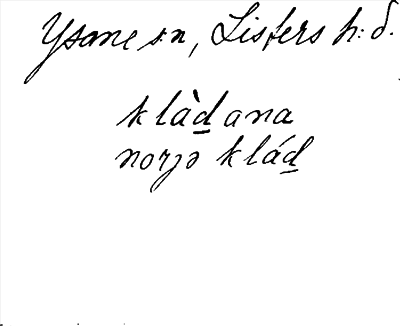 Ysane s:n, Listers h:d.
klàḏana
norʒə kláḏ